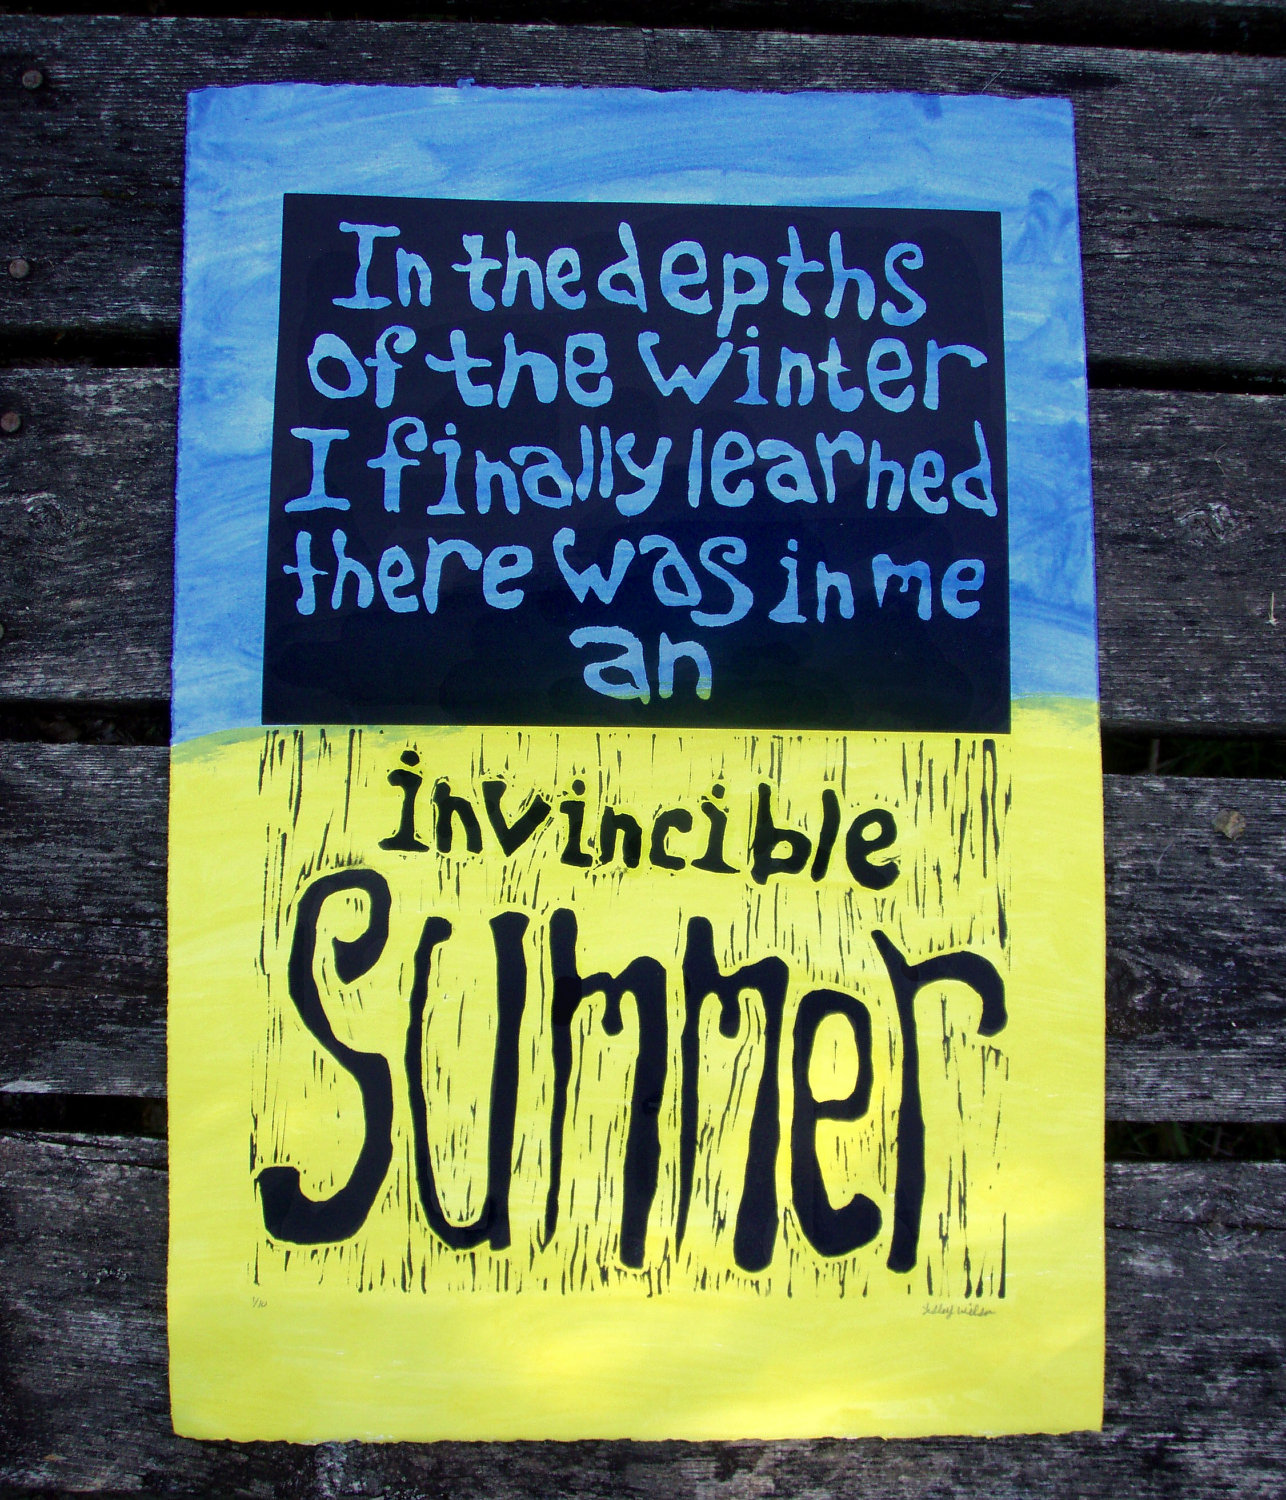 In the depths
of the winter
I finally learned
there was in me
an
invincible
Summer
1/10